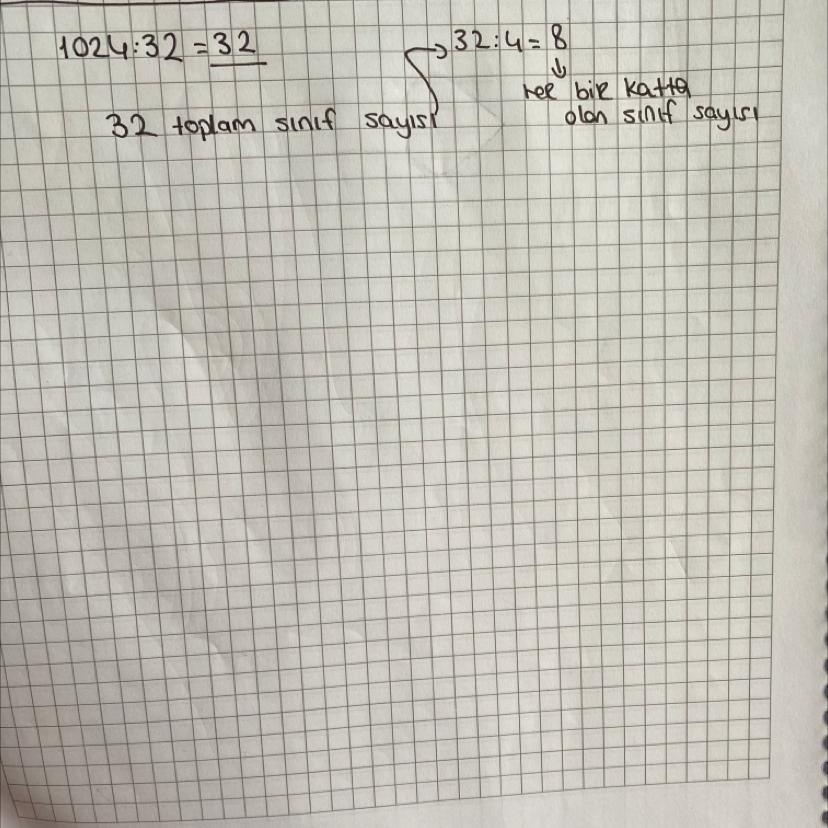 1024:32 = 32
32 toplam sınıf sayısı
32:4 = 8
her bir katta
olan sınıf sayısı